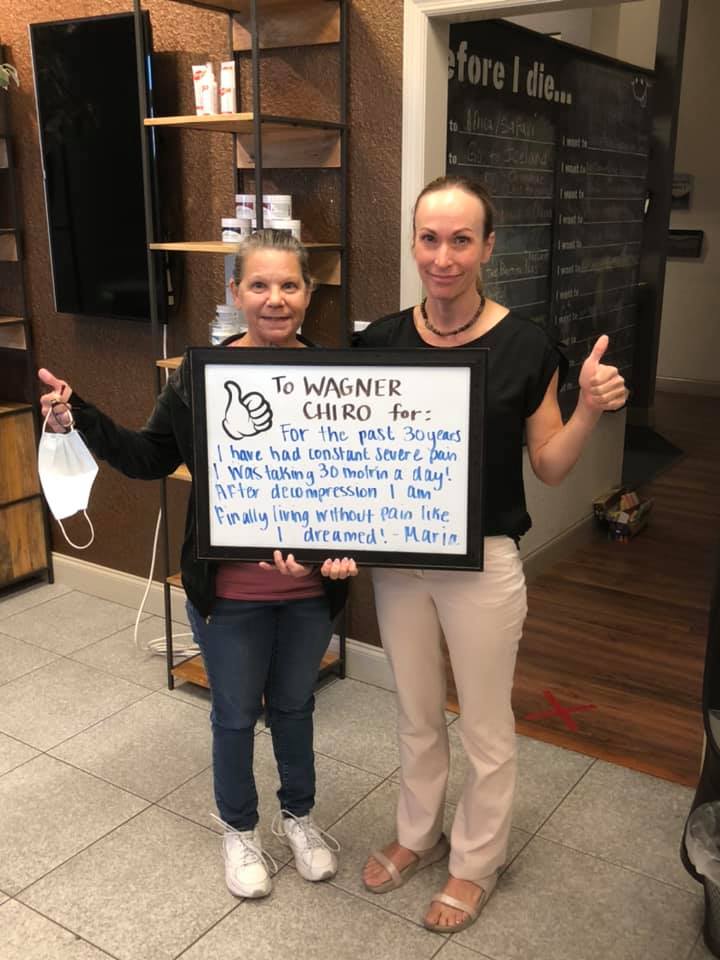 efore I die...
to Africa/Safari
to Go to Iceland
I want to
I want to
I want to
I want to
I want to
To WAGNER
CHIRO for:
For the past 30 years
I have had constant severe pain
I was taking 30 motrin a day!
After decompression I am
Finally living without Pain like
I dreamed! - Maria